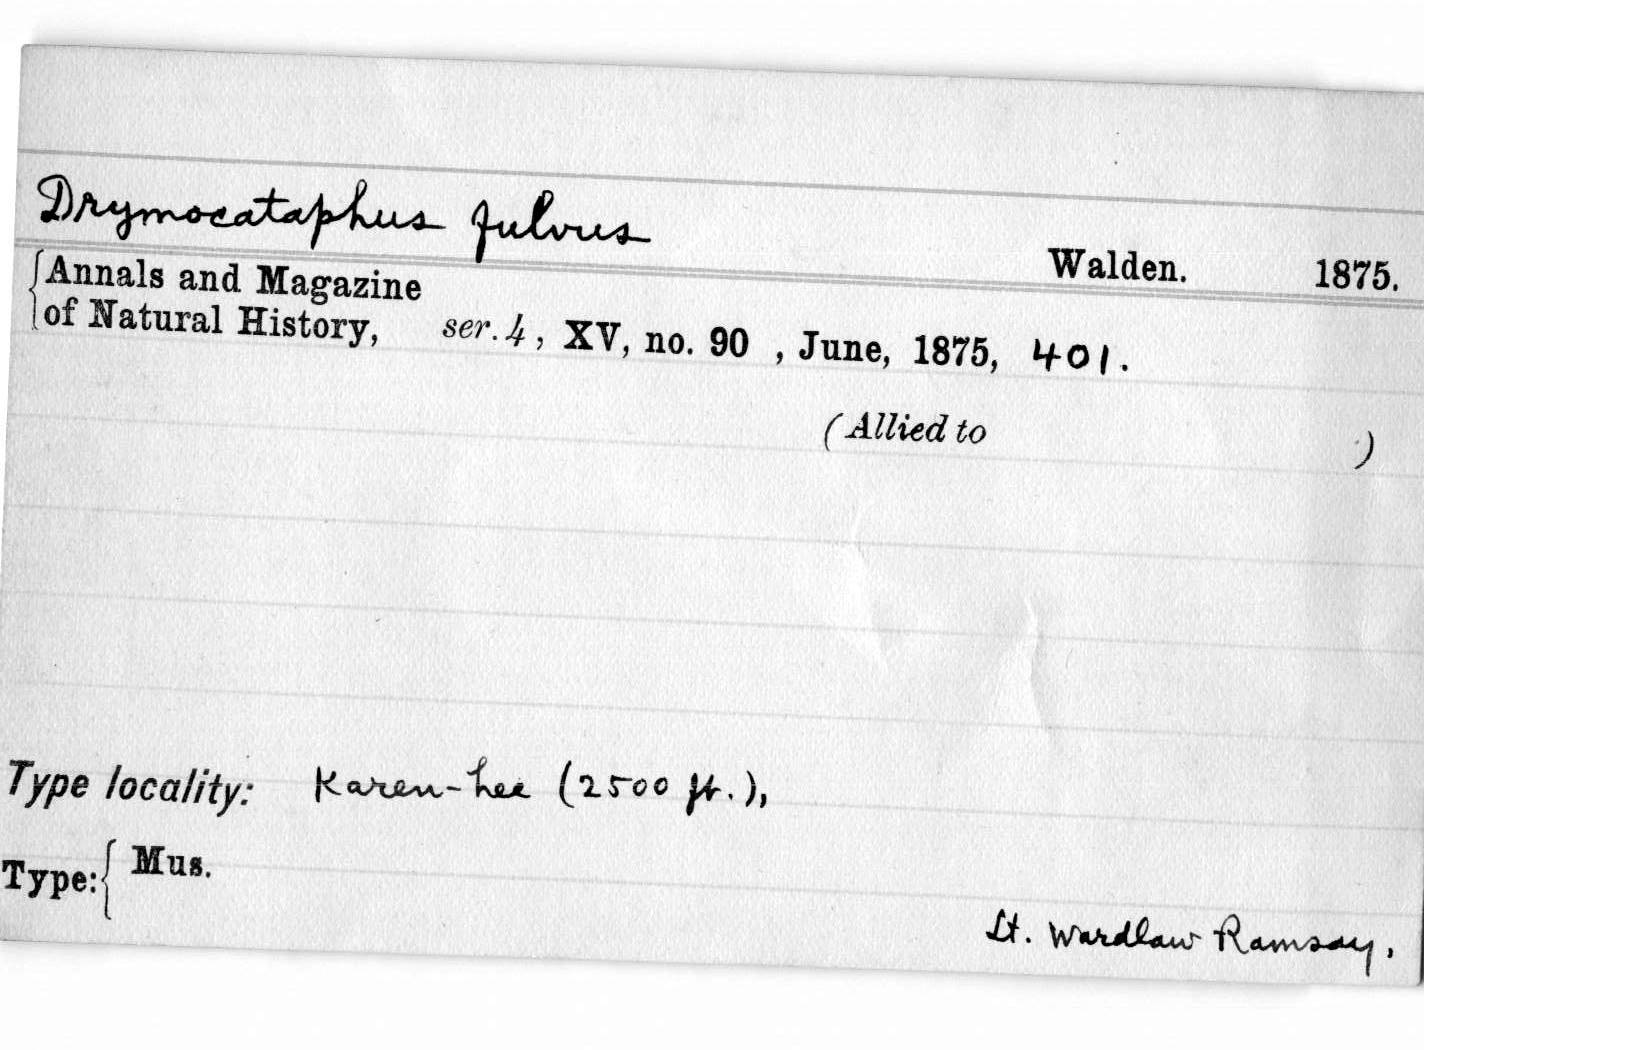 Drymocataphus fulvus
Walden. 1875.
Annals and Magazine
of Natural History, ser. 4, XV, no. 90 , June, 1875, 401.
(Allied to )
Type locality: Karen-hee (2500 ft.),
Type: Mus.
Lt. Wardlaw Ramsay.